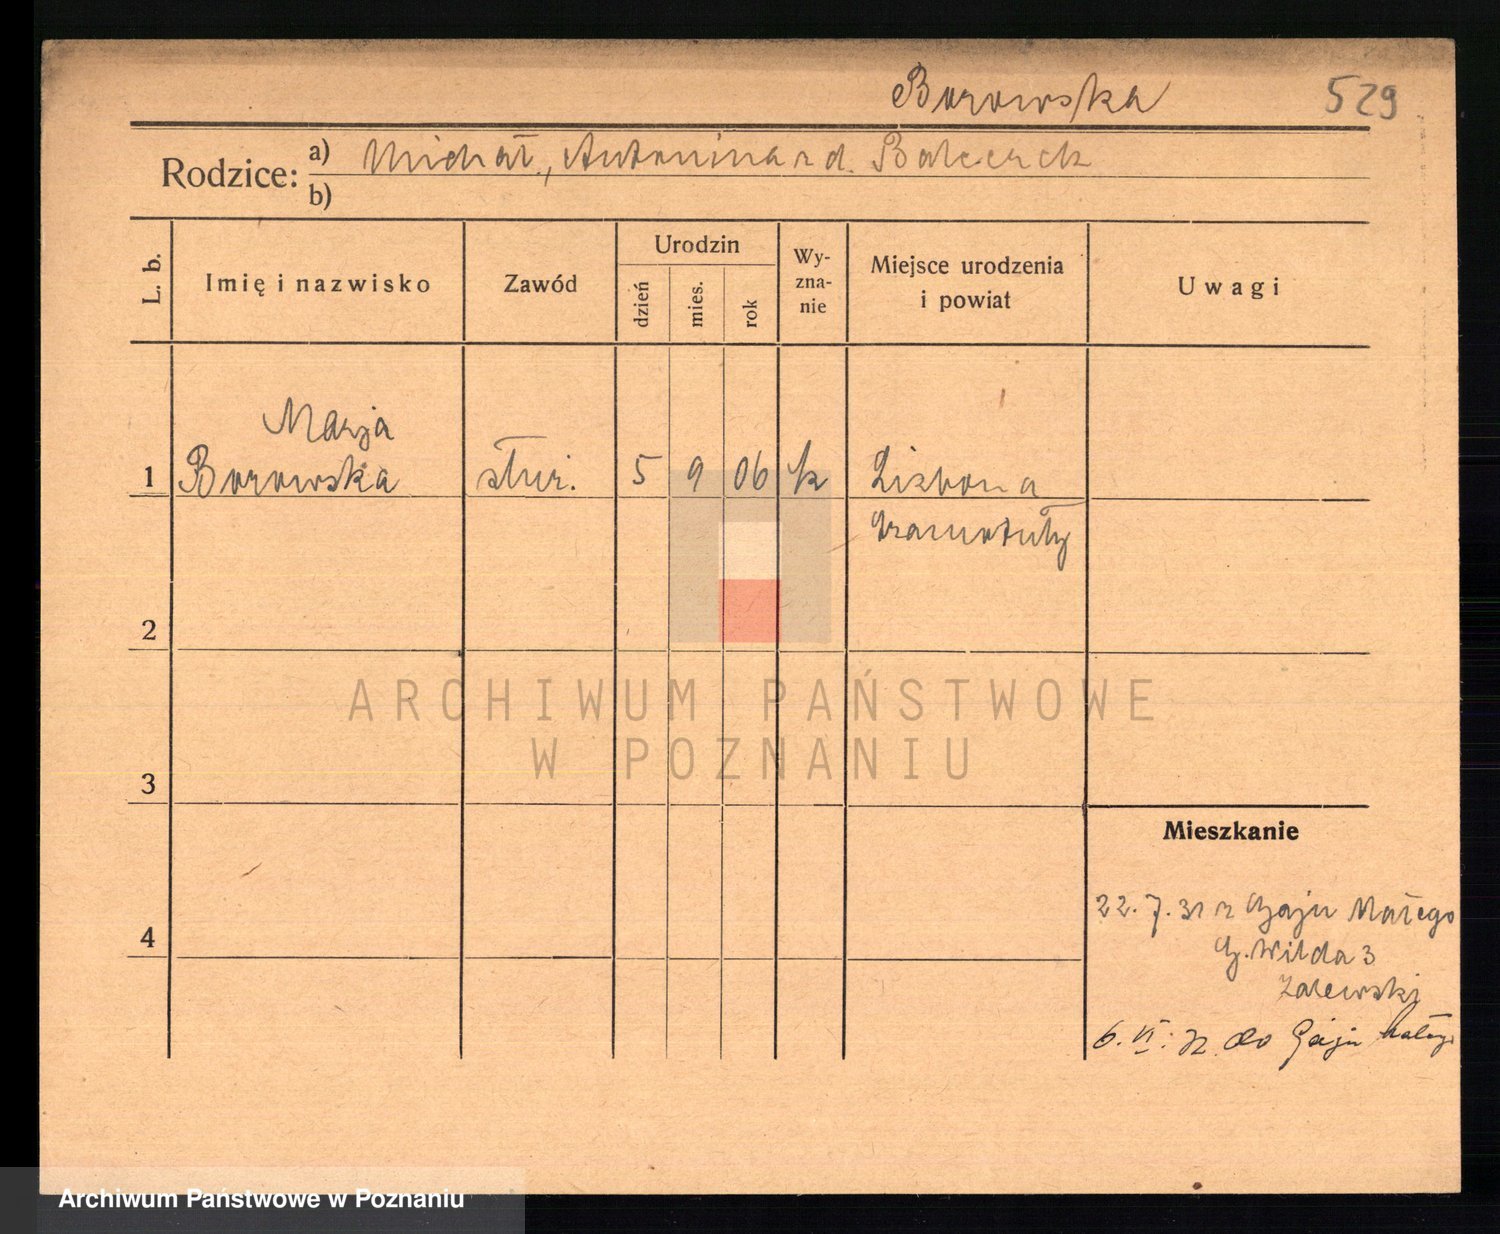 Borowska 529
Rodzice: a) Michał, Antonina z d. Balcerek
b)
L. b. Imię i nazwisko Zawód Urodzin dzień mies. rok Wy-zna-nie Miejsce urodzenia i powiat Uwagi
Marja
1 Borowska służ. 5 9 06 k
Szamotuły
2
ARCHIWUM PAŃSTWOWE
W POZNANIU
3
Mieszkanie
22.7.31 z Gaju Małego
4
G. Wilda 3
Zalewski
6. VI. 32 do Gaju Małeg
Archiwum Państwowe w Poznaniu